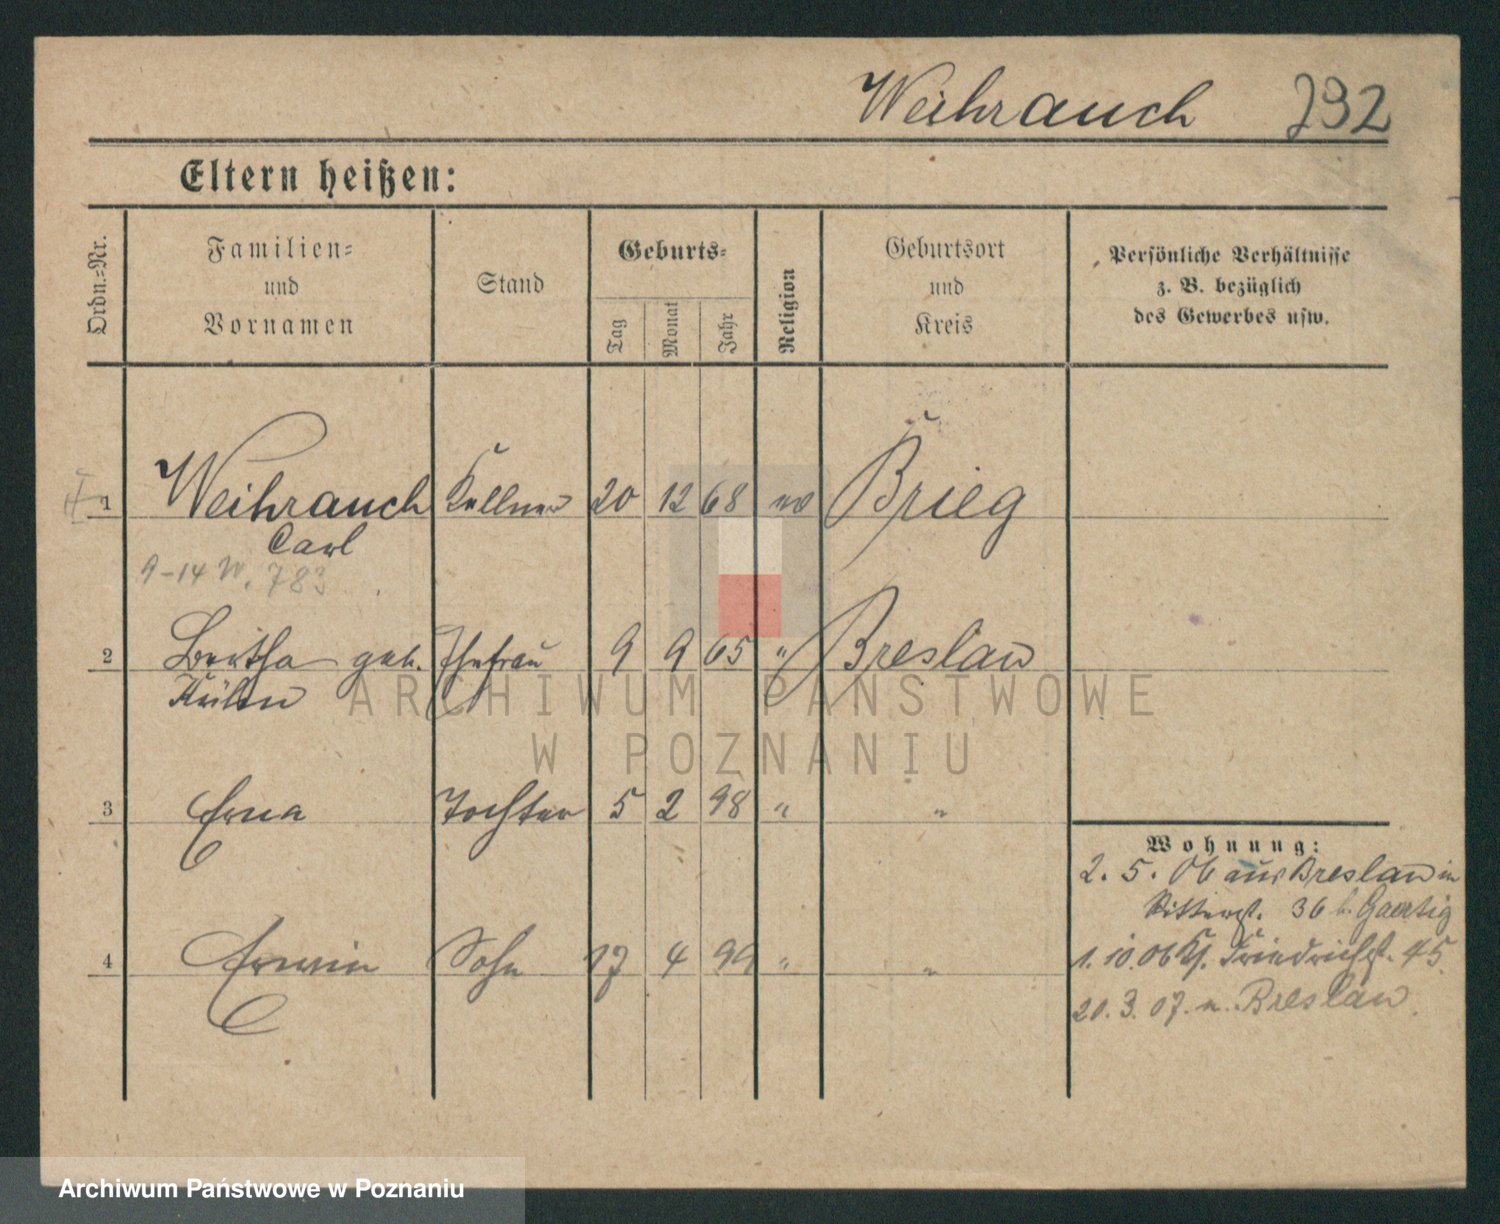 Weihrauch 792
Eltern heißen:
Ordn.-Nr.
Familien-
und
Vornamen
Stand
Geburts-
Tag
Monat
Jahr
Religion
Geburtsort
und
Kreis
Persönliche Verhältnisse
z. B. bezüglich
des Gewerbes usw.
1 Weihrauch Kellner 20 12 68 ev Brieg
Carl
9-14 W. 783
2 Bertha geb. Ehefrau 9 9 65 " Breslau
3 Erna Tochter 5 2 98 " "
4 Erwin Sohn 17 4 99 " "
Wohnung:
2. 5. 06 aus Breslau in
Ritterst. 36 b. Gaertig
1. 10. 06 Friedrichst. 45.
20. 3. 07. n. Breslau.
ARCHIWUM PAŃSTWOWE
W POZNANIU
Archiwum Państwowe w Poznaniu